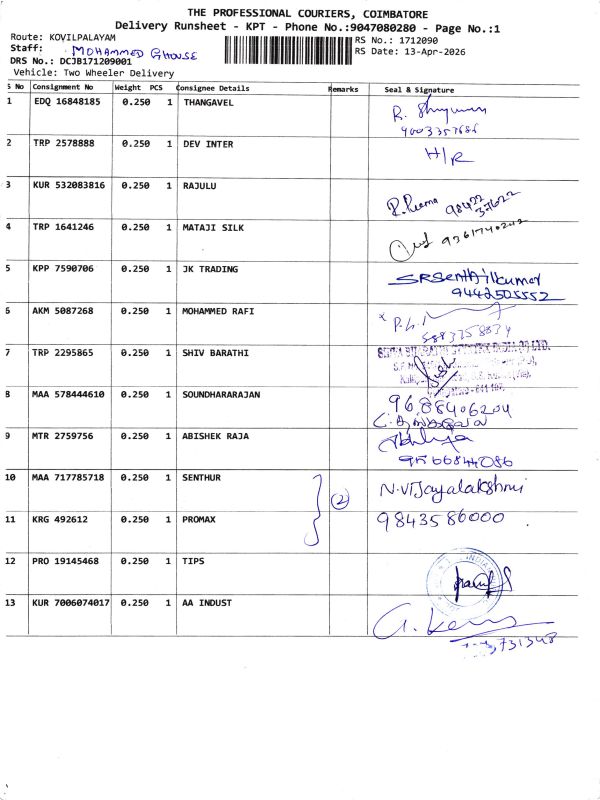 THE PROFESSIONAL COURIERS, COIMBATORE
Delivery Runsheet - KPT - Phone No.:9047080280 - Page No.:1
Route: KOVILPALAYAM
RS No.: 1712090
Staff: MOHAMMED GHOUSE
RS Date: 13-Apr-2026
DRS No.: DCJB171209001
Vehicle: Two Wheeler Delivery
S No Consignment No Weight PCS Consignee Details Remarks Seal & Signature
1 EDQ 16848185 0.250 1 THANGAVEL
2 TRP 2578888 0.250 1 DEV INTER H/R
3 KUR 532083816 0.250 1 RAJULU
4 TRP 1641246 0.250 1 MATAJI SILK
5 KPP 7590706 0.250 1 JK TRADING SRSenthilkumar
9442505552
6 AKM 5087268 0.250 1 MOHAMMED RAFI
7 TRP 2295865 0.250 1 SHIV BARATHI
8 MAA 578444610 0.250 1 SOUNDHARARAJAN 9688406204
9 MTR 2759756 0.250 1 ABISHEK RAJA
9566844086
10 MAA 717785718 0.250 1 SENTHUR 2 N.Vijayalakshmi
11 KRG 492612 0.250 1 PROMAX 9843586000
12 PRO 19145468 0.250 1 TIPS
13 KUR 7006074017 0.250 1 AA INDUST